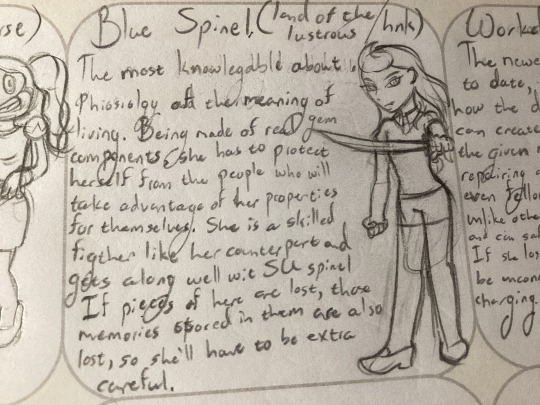 rse)
Blue Spinel (land of the lustrous / hnk)
The most knowlegable about
Phiosiolgy and the meaning of
living. Being made of real gem
components, she has to protect
herself from the people who will
take advantage of her properties
for themselves. She is a skilled
figther like her counterpart and
gets along well wit SU spinel
If pieces of here are lost, those
memories spored in them are also
lost, so she'll have to be extra
careful.
Worke
The newe
to date,
how the d
can create
the given
repairing a
even fello
unlike othe
and can sa
If she los
be uncon
charging.